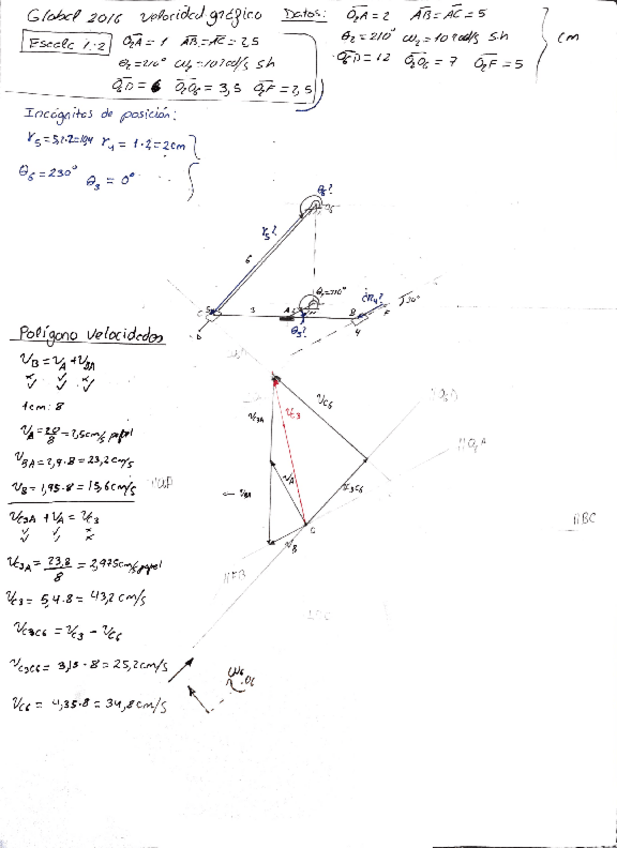 Global 2016 velocidad gráfico
Datos: O₂A = 2 AB = AC = 5
θ₂ = 210° ω₂ = 10 rad/s SH
O₆D = 12 O₂O₆ = 7 O₂F = 5
cm
Escala 1:2
O₂A = 1 AB = AC = 2,5
θ₂ = 210° ω₂ = 10 rad/s SH
O₆D = 6 O₂O₆ = 3,5 O₂F = 2,5
Incógnitas de posición:
r₅ = 5,2·2 = 10,4 r₄ = 1·2 = 2cm
θ₆ = 230° θ₃ = 0°
θ₆?
O₆
r₅?
6
θ₂ = 210°
r₄?
30°
C
3
A
B
F
D
θ₃?
4
Polígono velocidades
V_B = V_A + V_BA
1cm: 8
V_A = 20/8 = 2,5cm/s papel
V_BA = 2,9·8 = 23,2cm/s
V_B = 1,95·8 = 15,6cm/s
V_C3A + V_A = V_C3
V_C3A = 23,8/8 = 2,975cm/s papel
V_C3 = 5,4·8 = 43,2 cm/s
V_C3C6 = V_C3 - V_C6
V_C3C6 = 3,15·8 = 25,2cm/s
V_C6 = 4,35·8 = 34,8cm/s
V_C6
V_C3A
V_C3
V_A
V_C3C6
V_BA
V_B
//O₂A
//BC
//FB
ω₆
O₆